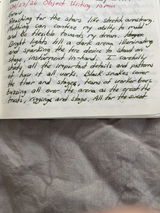 Object Writing
Reaching for the stars like stretch armstrong.
Nothing can confine my ability to mold
and be flexible towards my dream.
Bright lights fill a dark arena, illuminating
and sparking the fire desire to stand on
stage, instrument in-hand. I carefully
study all the important details and patterns
of how it all works. Black snakes cover
the floor and stages, teams of worker bees
buzzing all over the arena as the great the
treats, riggings and stage. All for the sweet